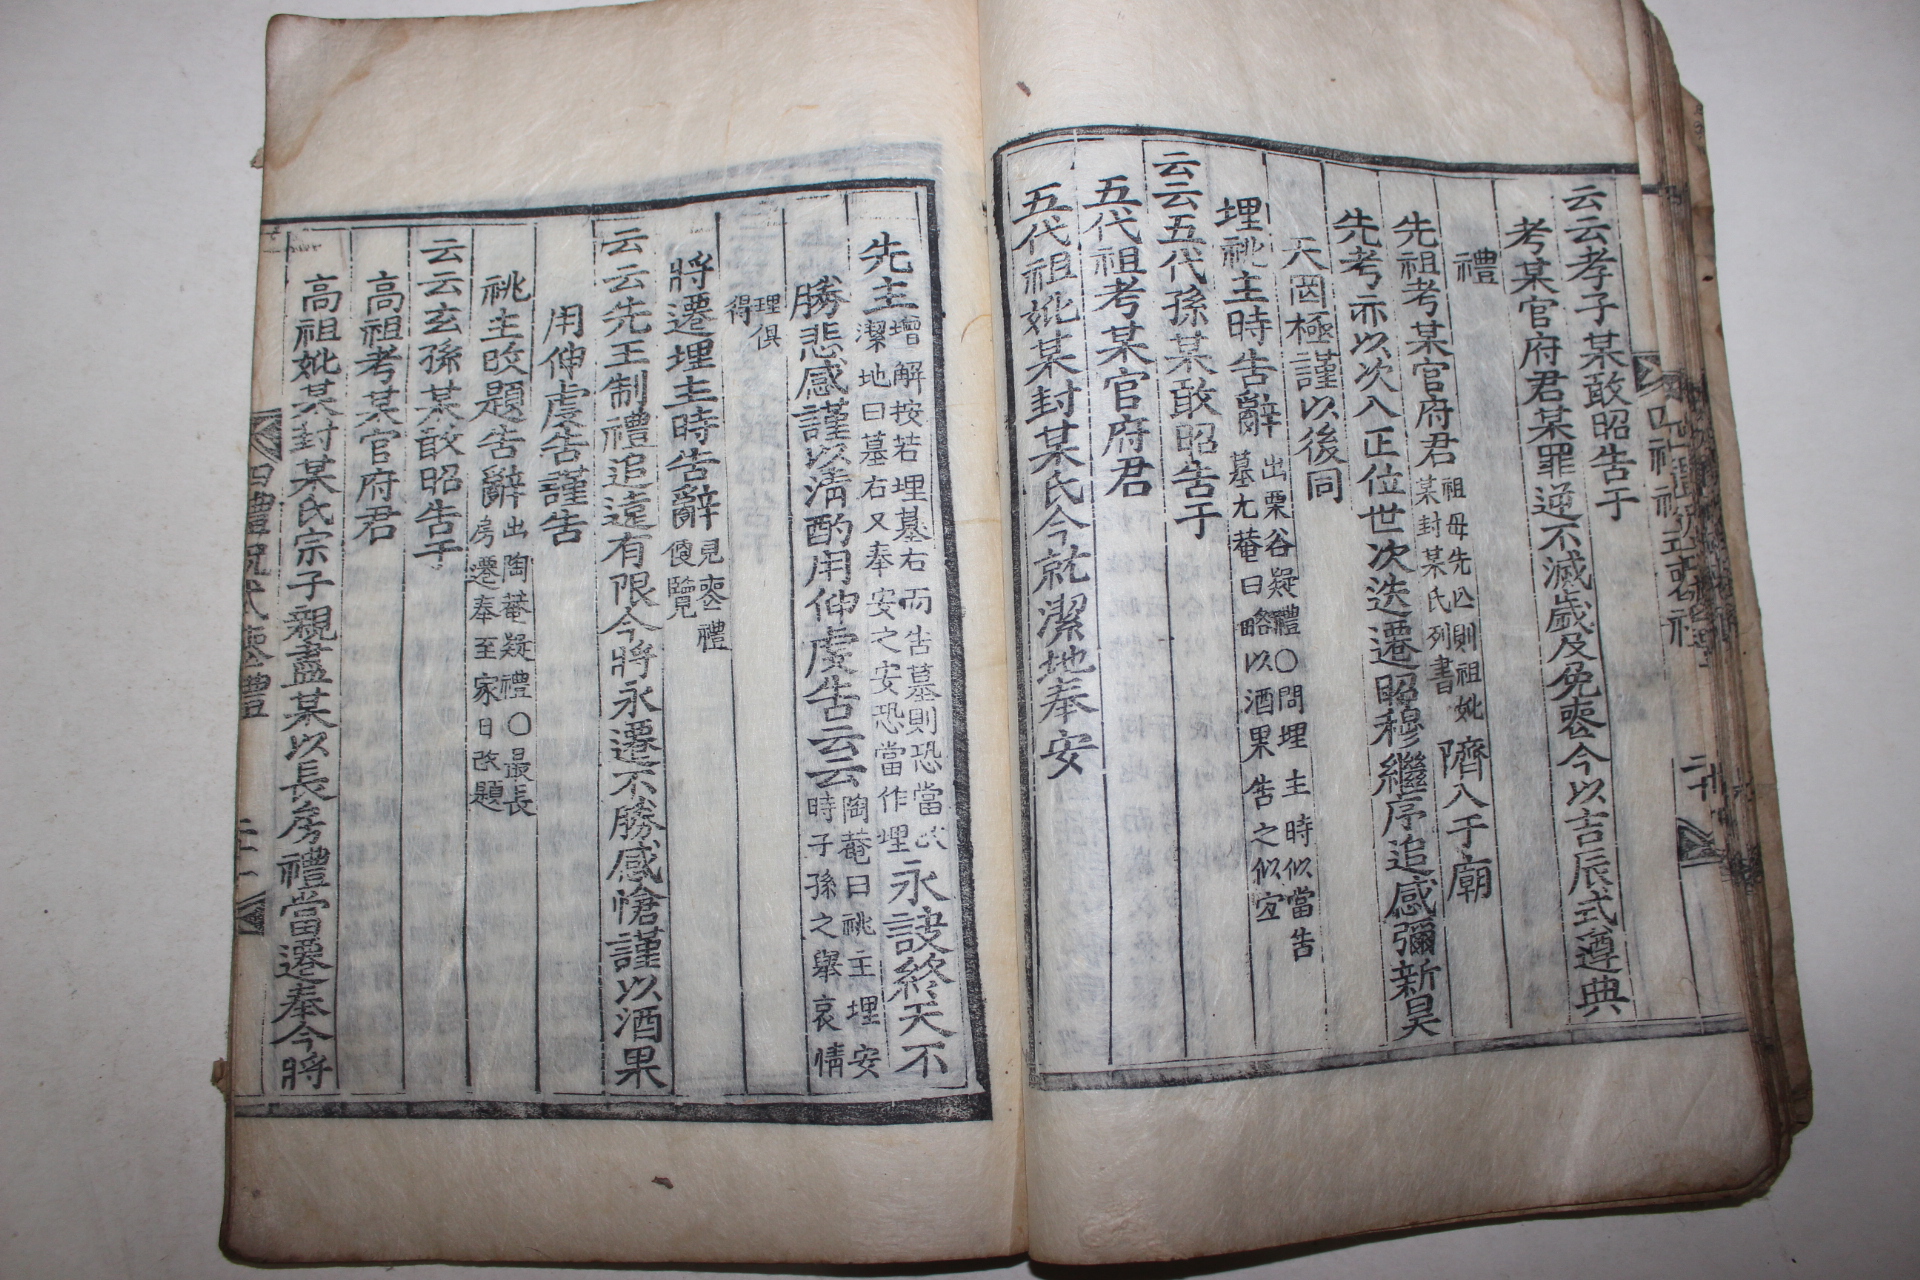 云云孝子某敢昭告于
考某官府君某罪逆不滅歲及免喪今以吉辰式遵典
禮
先祖考某官府君 祖母先亡則祖妣 某封某氏列書 隮入于廟
先考亦以次入正位世次迭遷昭穆繼序追感彌新昊
天罔極謹以後同
埋祧主時告辭 出栗谷疑禮○問埋主時似當告 墓尤菴曰略以酒果告之似宜
云云五代孫某敢昭告于
五代祖考某官府君
五代祖妣某封某氏今就潔地奉安
先主 增解按若埋墓右而告墓則恐當 潔地曰墓右又奉安之安恐當作埋 永訣終天不
勝悲感謹以淸酌用伸虔告云云 陶菴曰祧主埋安 時子孫之擧哀情
理俱 得
將遷埋主時告辭 見喪禮 備覽
云云先王制禮追遠有限今將永遷不勝感愴謹以酒果
用伸虔告謹告
祧主改題告辭 出陶菴疑禮○最長 房遷奉至家日改題
云云玄孫某敢昭告于
高祖考某官府君
高祖妣某封某氏宗子親盡某以長房禮當遷奉今將
四禮祝式喪禮
二十一